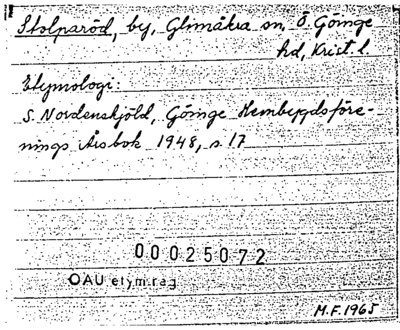 Stolparöd, by, Glimåkra sn, Ö. Göinge
hd, Krist. l.
Etymologi:
S. Nordenskjöld, Göinge Hembygdsföre-
nings Årsbok 1948, s. 17
00025072
OAU etym.reg
M.F. 1965